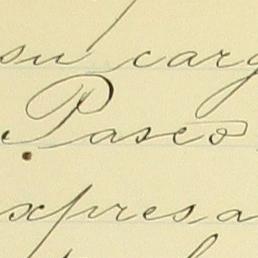 su carg
Paseo
expresa